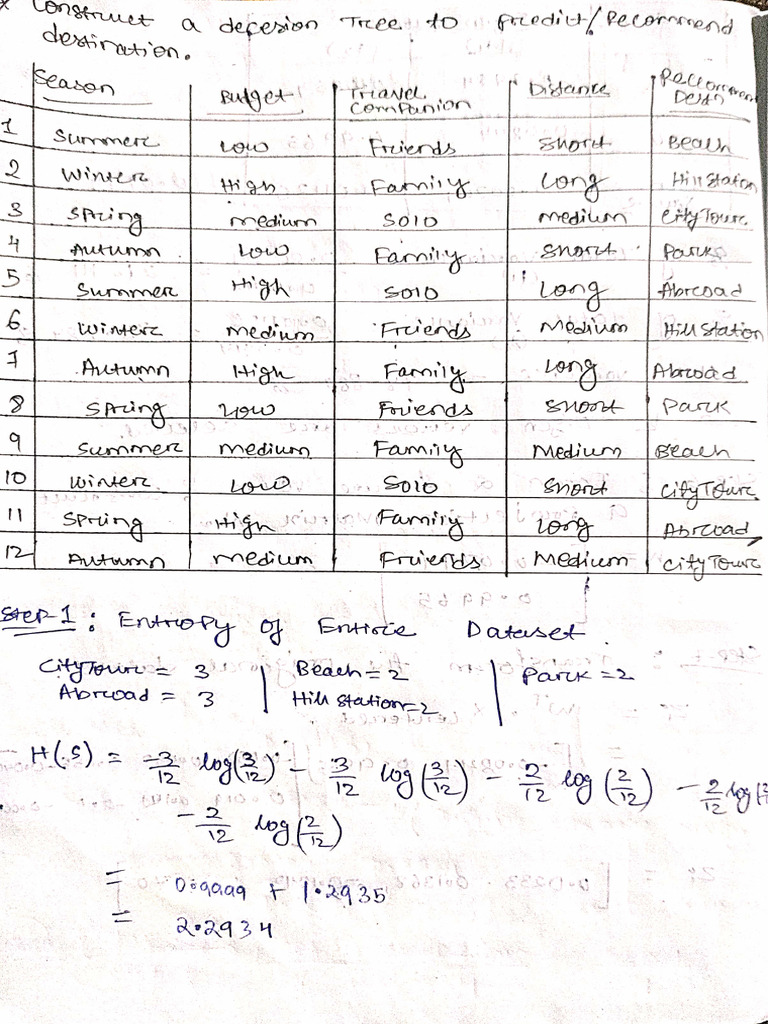 * Construct a decesion Tree to Predict/Recommend
destination.
Season | Butget | Travel Companion | Distance | Reccomment Destn
1 | Summer | Low | Friends | Short | Beach
2 | Winter | High | Family | Long | Hill Station
3 | Spring | medium | Solo | medium | City Tour
4 | Autumn | Low | Family | Short | Park
5 | Summer | High | Solo | Long | Abroad
6 | Winter | medium | Friends | Medium | Hill Station
7 | Autumn | High | Family | Long | Abroad
8 | Spring | Low | Friends | Short | Park
9 | Summer | medium | Family | Medium | Beach
10 | Winter | Low | Solo | Short | City Tour
11 | Spring | High | Family | Long | Abroad
12 | Autumn | medium | Friends | Medium | City Tour
Step-1: Entropy of Entire Dataset.
City Tour = 3 | Beach = 2 | Park = 2
Abroad = 3 | Hill Station = 2
H(S) = -3/12 log(3/12) - 3/12 log(3/12) - 2/12 log(2/12) - 2/12 log(2/12)
- 2/12 log(2/12)
= 0.9999 + 1.2935
= 2.2934